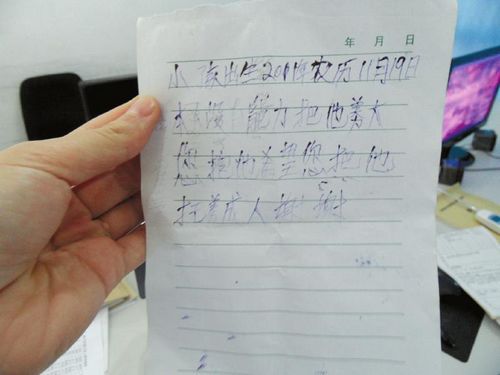 年 月 日
小孩出生2011年农历11月19日
我没有能力把他养大
您捡他希望您把他
抚养成人谢谢